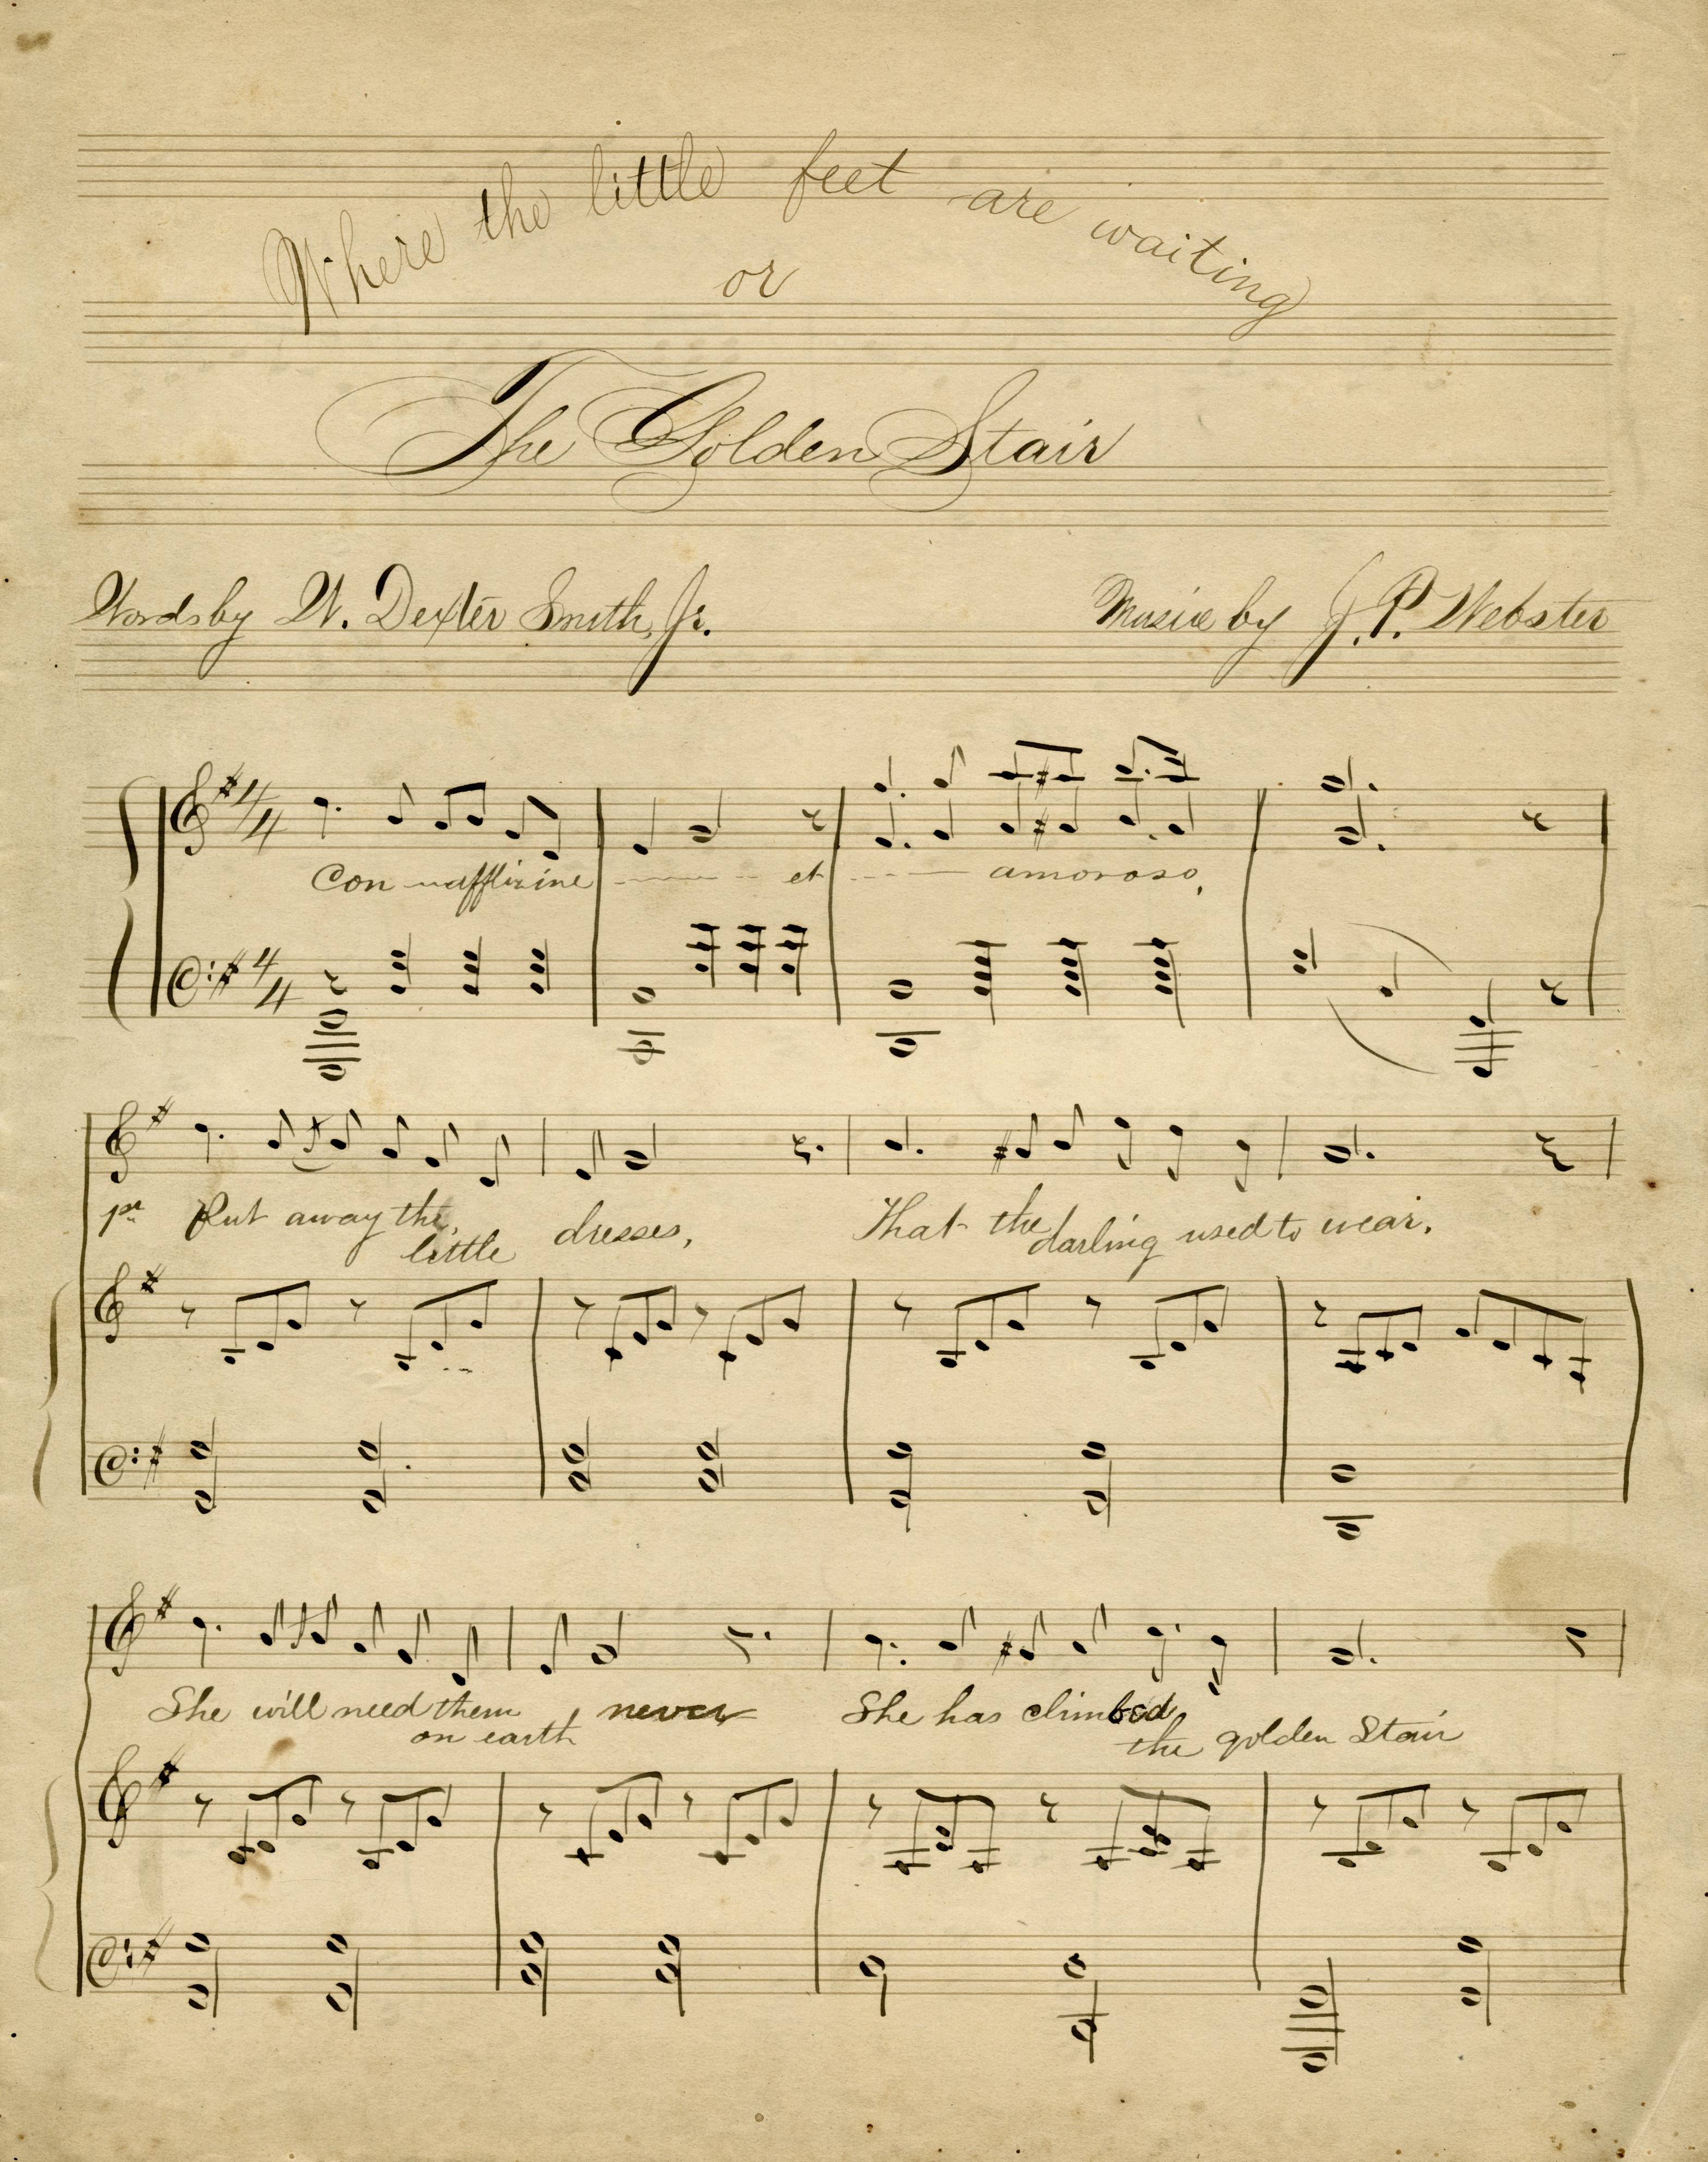 Where the little feet are waiting
or
The Golden Stair
Words by W. Dexter Smith, Jr.
Music by J. P. Webster
4/4
Con et amoroso,
4/4
1st Put away the little dresses, That the darling used to wear.
She will need them on earth never She has climbed the golden Stair